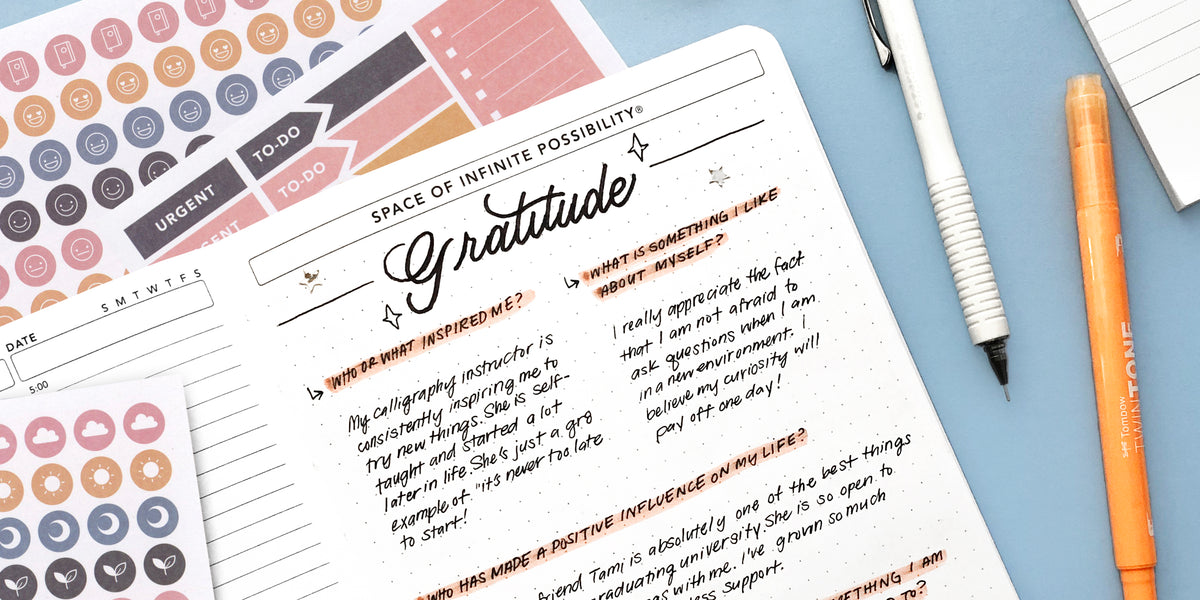 TO-DO
TO-DO
URGENT
SPACE OF INFINITE POSSIBILITY®
Gratitude
S M T W T F S
DATE
5:00
WHO OR WHAT INSPIRED ME?
My calligraphy instructor is
consistently inspiring me to
try new things. She is self-
taught and started a lot
later in life. She's just a gr8
example of "it's never too late
to start!
WHAT IS SOMETHING I LIKE
ABOUT MYSELF?
I really appreciate the fact
that I am not afraid to
ask questions when I am
in a new environment. I
believe my curiosity will
pay off one day!
WHO HAS MADE A POSITIVE INFLUENCE ON MY LIFE?
friend Tami is absolutely one of the best things
graduating university. She is so open to
with me. I've grown so much
support.
SOMETHING I AM
TO?
Tombow
TWINTONE